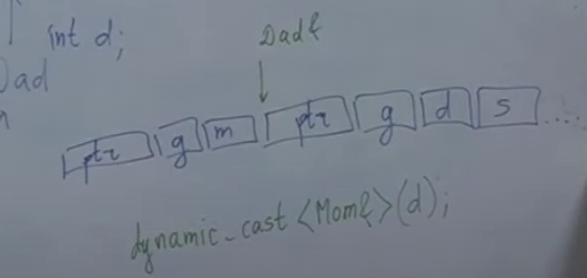 int d;
Dad&
Dad
ptr g m ptr g d s ....
dynamic_cast <Mom&>(d);